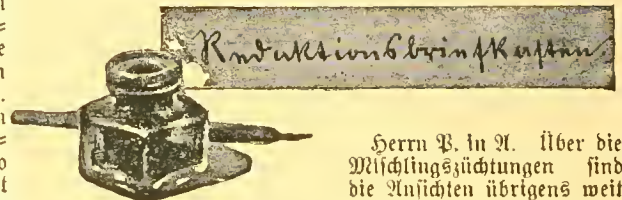 Redaktionsbriefkasten.
Herrn P. in A. Über die
Mischlingszüchtungen sind
die Ansichten übrigens weit